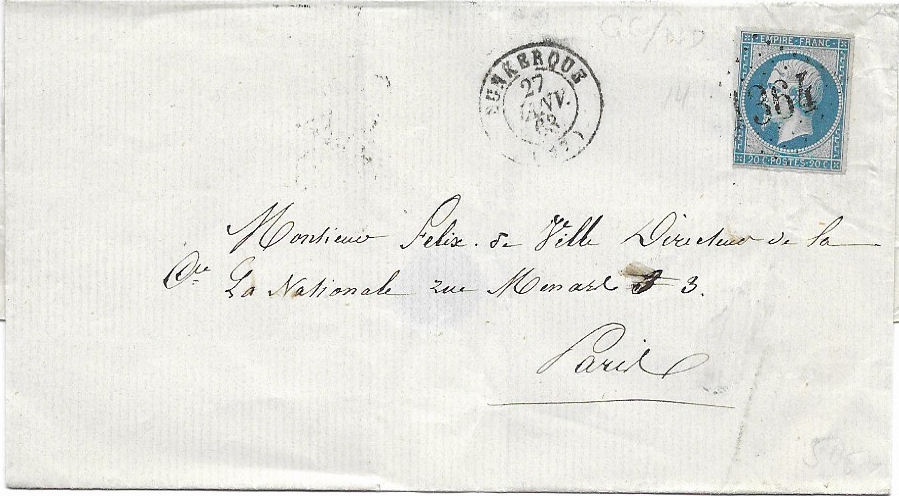 GC/ND
14
DUNKERQUE
27
JANV.
63
EMPIRE · FRANC.
1364
20 C · POSTES · 20 C
Monsieur Felix. de Ville Directeur de la
Cie La Nationale rue Menard 3.
Paris